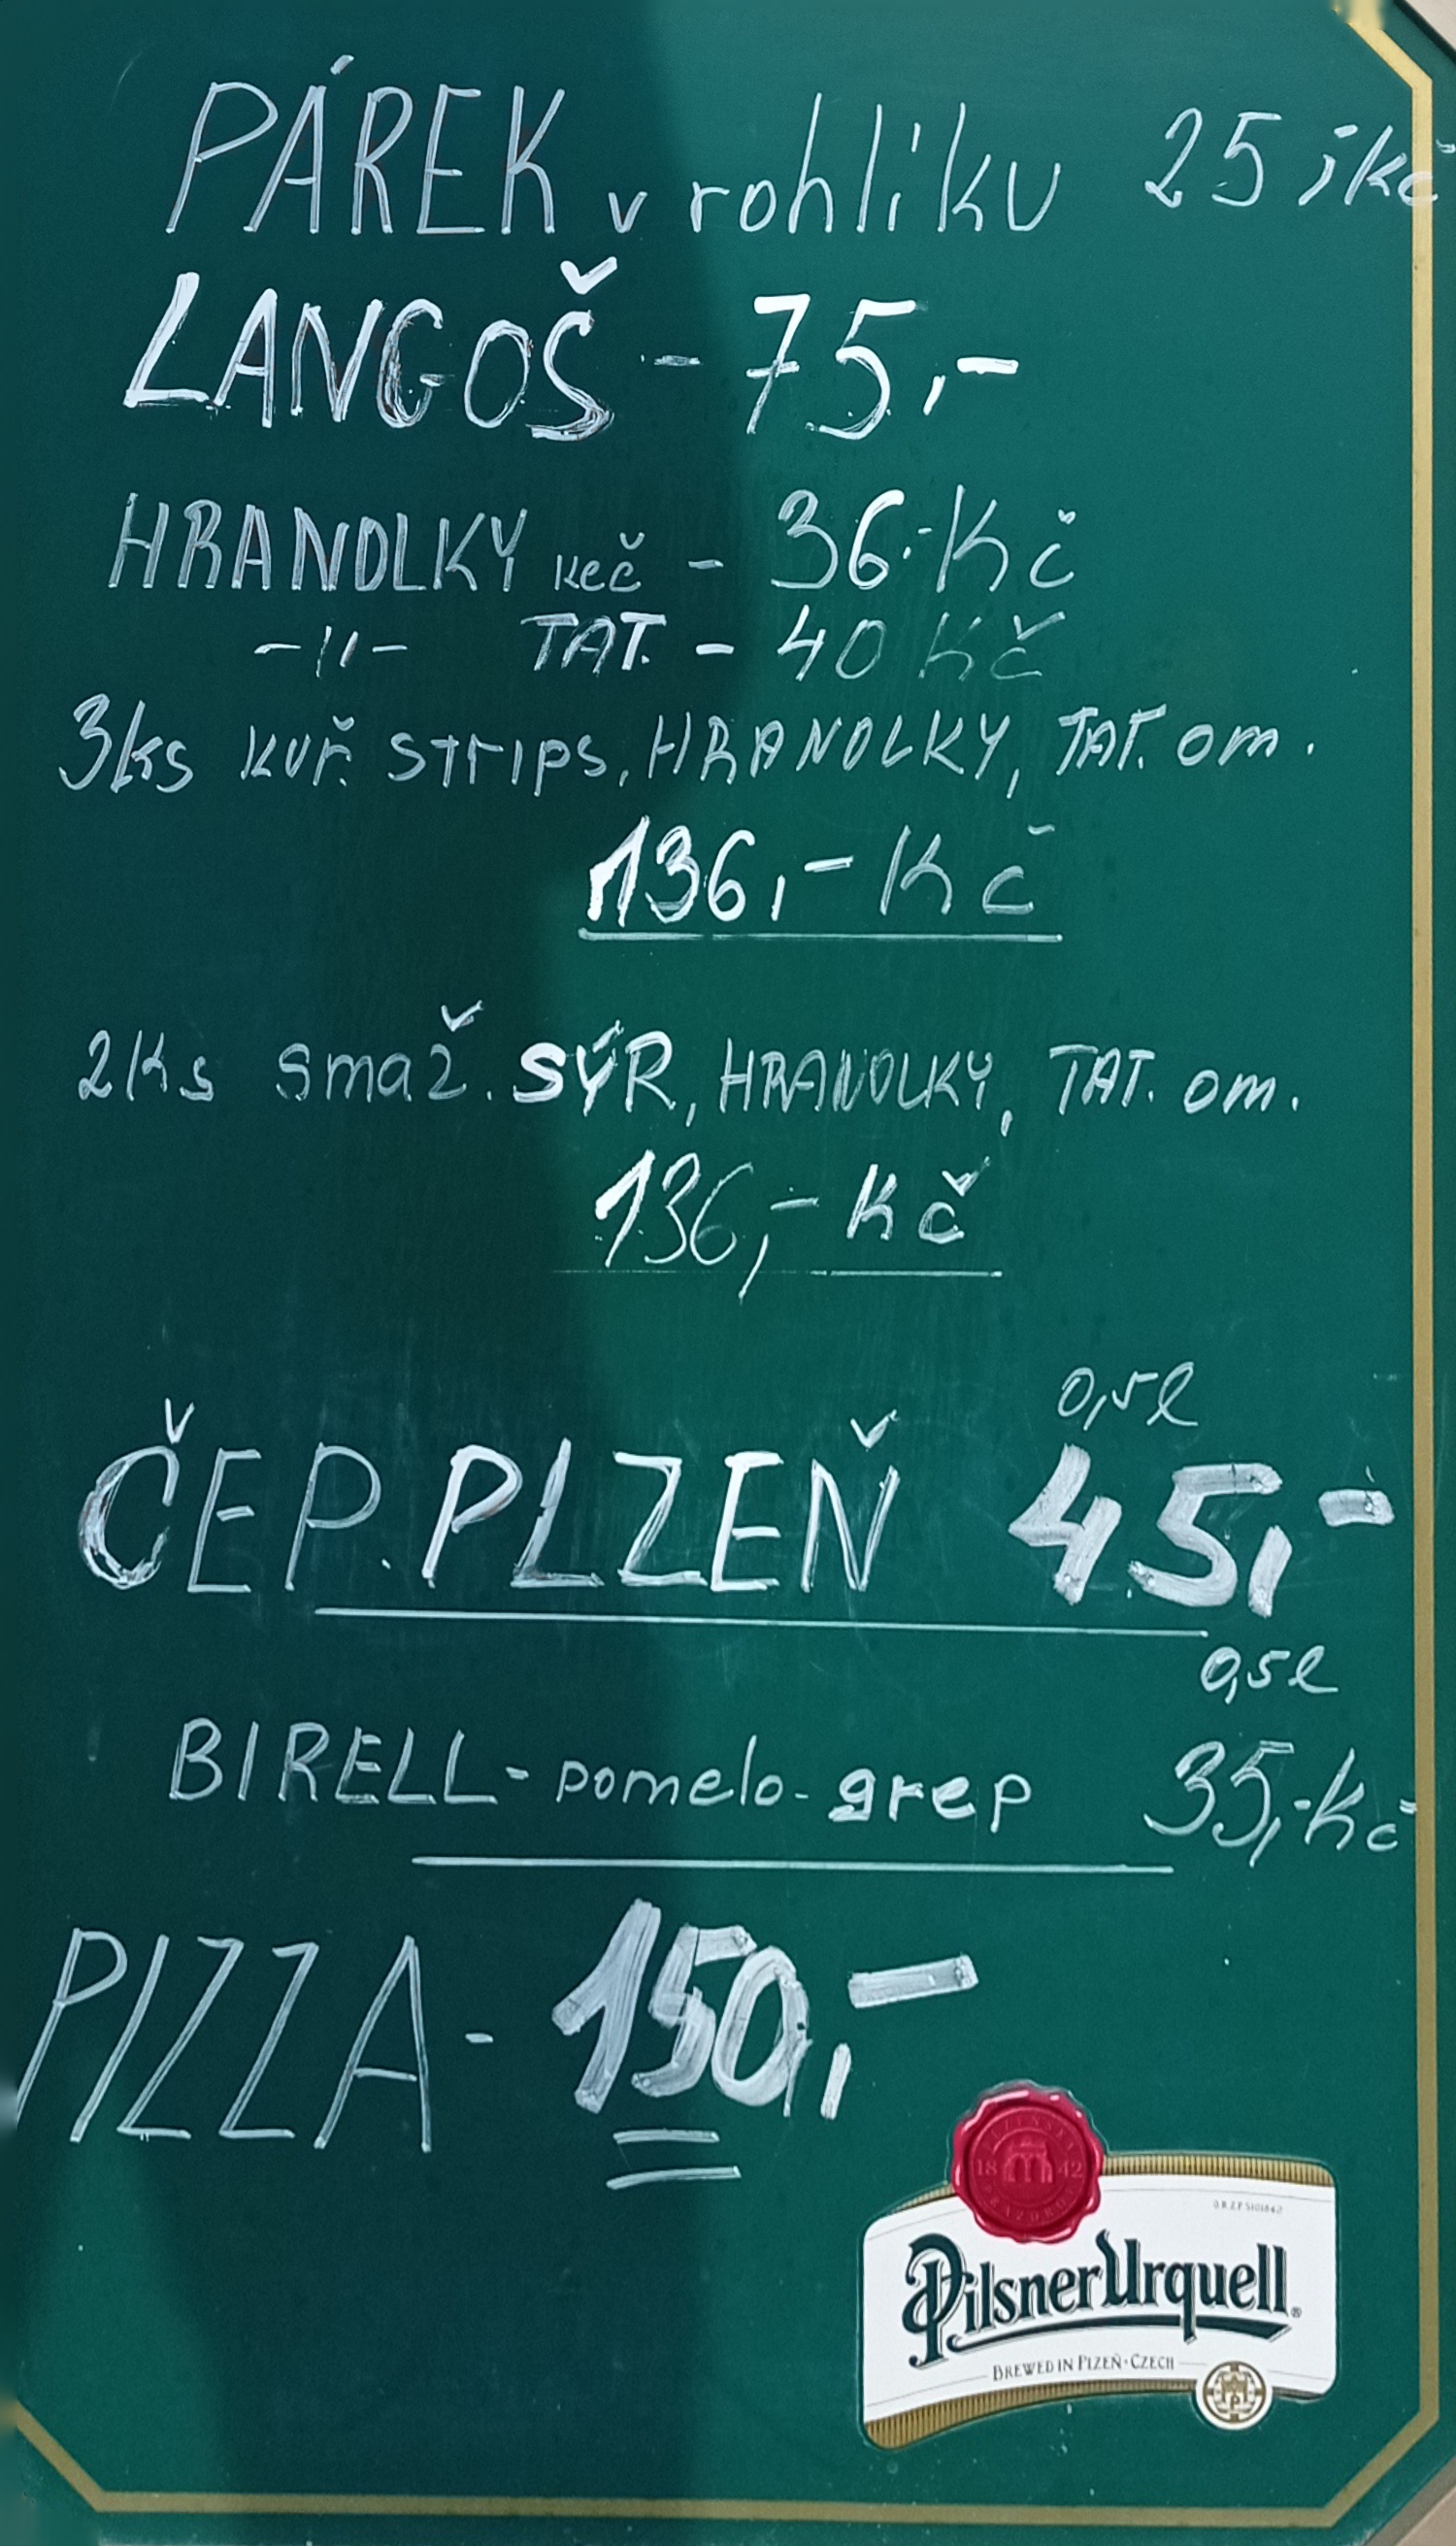 PÁREK v rohlíku 25,-kč
LANGOŠ - 75,-
HRANOLKY keč - 36.-Kč
-11- TAT. - 40 Kč
3ks kuř. STrIPS, HRANOLKY, TAT. om.
136,- Kč
2Ks smaž. SÝR, HRANOLKY, TAT. om.
136,- Kč
0,5l
ČEP. PLZEŇ 45,-
0,5l
BIRELL - pomelo - grep 35,-Kč
PIZZA - 150,-
18 42
Pilsner Urquell
BREWED IN PLZEŇ · CZECH